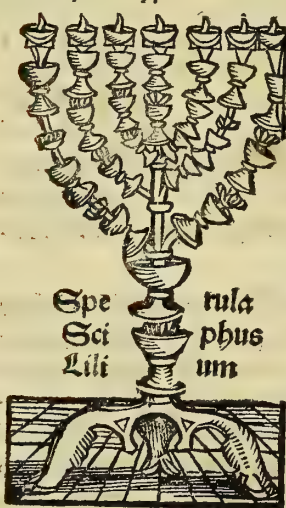 Spe rula
Sci phus
Lili um